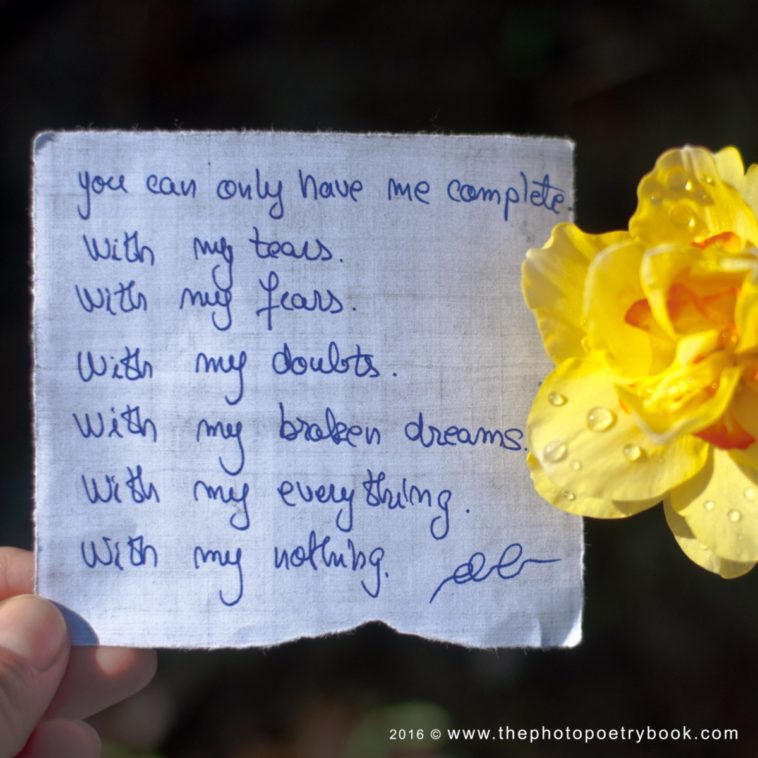 you can only have me complete.
With my tears.
With my fears.
With my doubts.
With my broken dreams.
With my everything.
With my nothing.
2016 © www.thephotopoetrybook.com